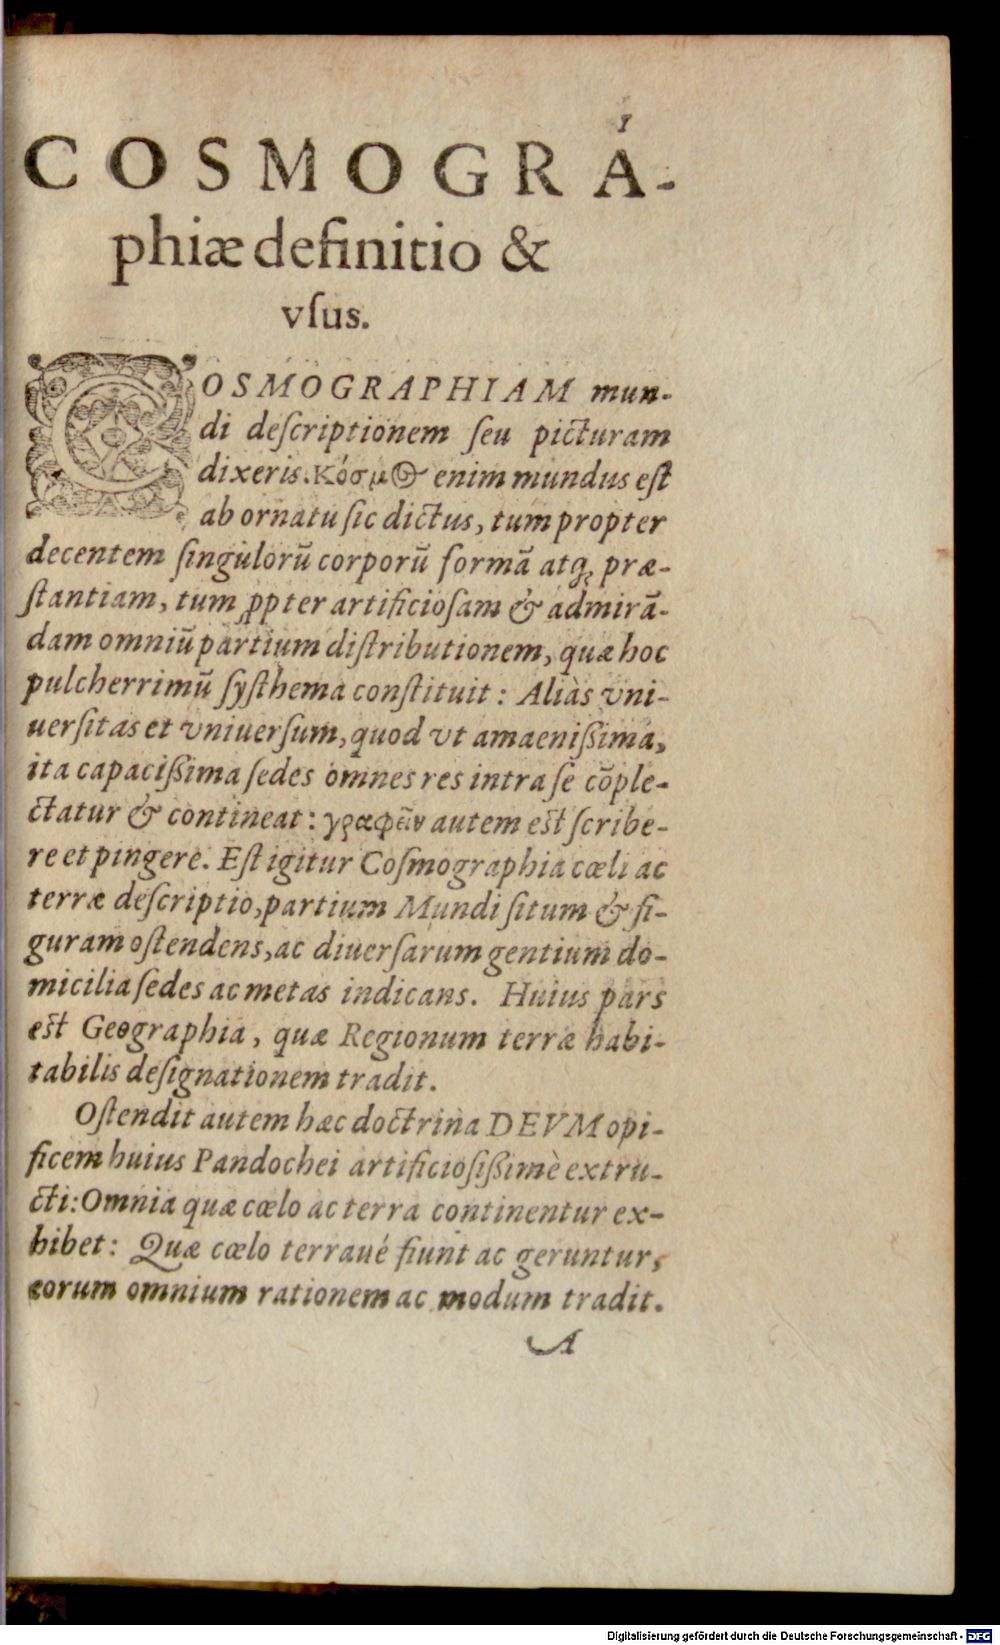 1
COSMOGRA-
phiæ definitio &
vſus.
COSMOGRAPHIAM mun-
di deſcriptionem ſeu picturam
dixeris. Κόσμος enim mundus eſt
ab ornatu ſic dictus, tum propter
decentem ſingulorū corporū formā atq́ue præ-
ſtantiam, tum ꝓpter artificioſam & admirā-
dam omniū partium diſtributionem, quæ hoc
pulcherrimū ſyſthema conſtituit: Aliàs vni-
uerſitas et vniuerſum, quod vt amaenißima,
ita capacißima ſedes omnes res intra ſe cōple-
ctatur & contineat: γραφεῖν autem eſt ſcribe-
re et pingere. Eſt igitur Coſmographia cœli ac
terræ deſcriptio, partium Mundi ſitum & fi-
guram oſtendens, ac diuerſarum gentium do-
micilia ſedes ac metas indicans. Huius pars
eſt Geographia, quæ Regionum terræ habi-
tabilis deſignationem tradit.
Oſtendit autem hæc doctrina DEVM opi-
ficem huius Pandochei artificioſißimè extru-
cti: Omnia quæ cœlo ac terra continentur ex-
hibet: Quæ cœlo terraué fiunt ac geruntur,
eorum omnium rationem ac modum tradit.
A
Digitalisierung gefördert durch die Deutsche Forschungsgemeinschaft - DFG